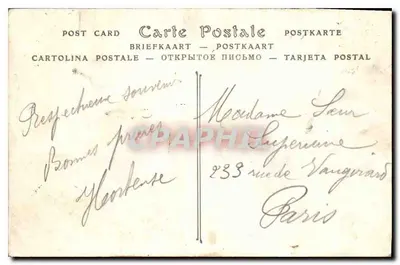 POST CARD Carte Postale POSTKARTE
BRIEFKAART — POSTKAART
CARTOLINA POSTALE — ОТКРЫТОЕ ПИСЬМО — TARJETA POSTAL
Respectueux souvenir
Bonnes prières
Hortense
Madame Sœur
Supérieure
233 rue de Vaugirard
Paris